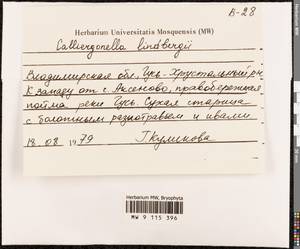 B-28
Herbarium Universitatis Mosquensis (MW)
Calliergonella lindbergii
Владимирская обл., Гусь-Хрустальный рн
К западу от с. Аксеново, правобережная
пойма реки Гусь. Сухая старица
с болотным разнотравьем и ивами
18 08 1979 Г Куликова
Herbarium MW, Bryophyta
MW 9 115 396